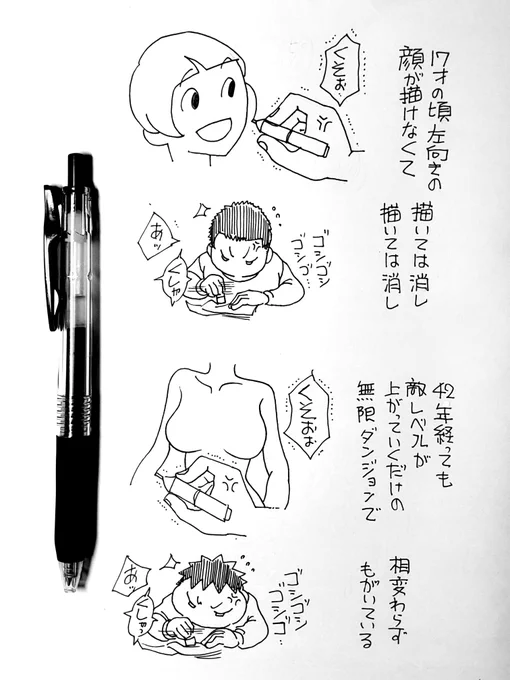 17才の頃左向きの
顔が描けなくて
くそぉ
描いては消し
描いては消し
ゴシゴシ
ゴシゴシ…
あッ
くしゃ
42年経っても
敵レベルが
上がっていくだけの
無限ダンジョンで
くそおぉ
相変わらず
もがいている
ゴシゴシ
ゴシゴシ…
あッ
くしゅっ